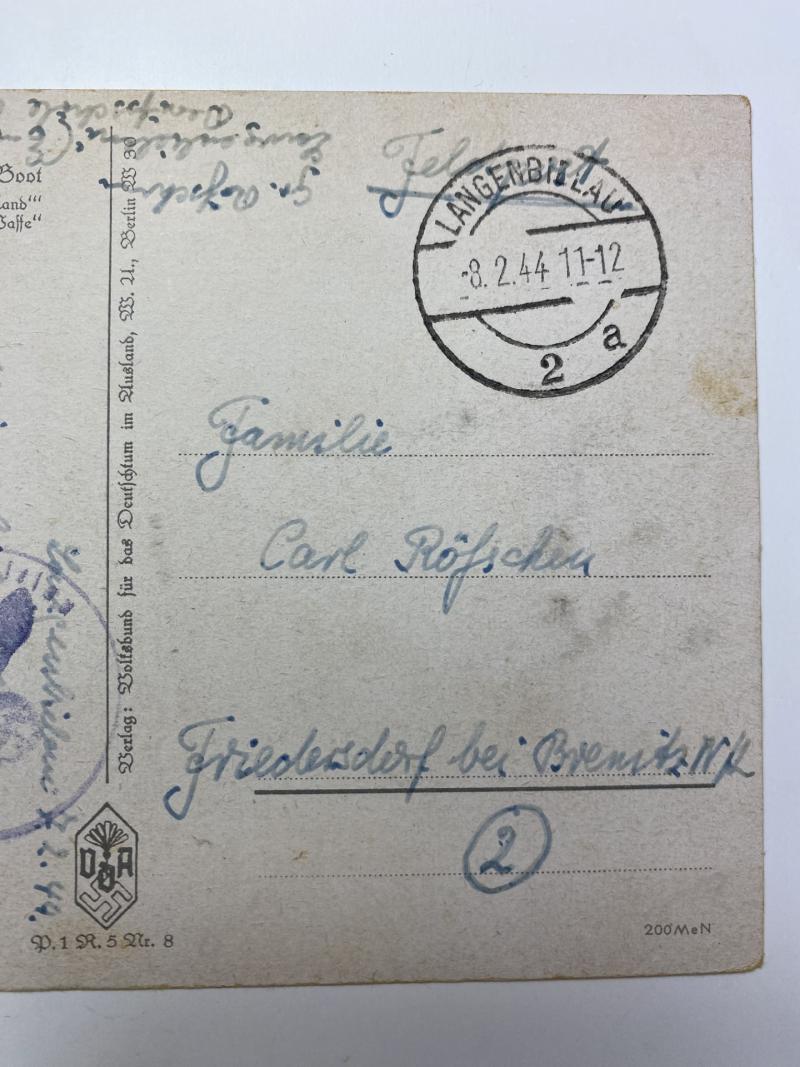 Boot
land"'
Waffe"
Feldpost
LANGENBIELAU
-8.2.44 11-12
2 a
Verlag: Volksbund für das Deutschtum im Ausland, W. U., Berlin W 30
Familie
Carl Röfschen
Friedersdorf bei Bremitz N/L
2
Langenbielau 7.2.44.
VDA
P. 1 R. 5 Nr. 8
200 M e N